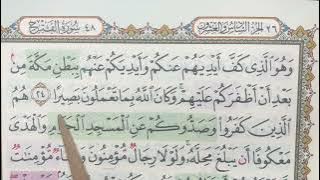 ٢٦ الجزء السادس والعشرون سورة الفتح ٤٨
وَهُوَ الَّذِي كَفَّ أَيْدِيَهُمْ عَنكُمْ وَأَيْدِيَكُمْ عَنْهُم بِبَطْنِ مَكَّةَ مِن
بَعْدِ أَنْ أَظْفَرَكُمْ عَلَيْهِمْ وَكَانَ اللَّهُ بِمَا تَعْمَلُونَ بَصِيرًا ٢٤ هُمُ
الَّذِينَ كَفَرُوا وَصَدُّوكُمْ عَنِ الْمَسْجِدِ الْحَرَامِ وَالْهَدْيَ
مَعْكُوفًا أَن يَبْلُغَ مَحِلَّهُ وَلَوْلَا رِجَالٌ مُّؤْمِنُونَ وَنِسَاءٌ مُّؤْمِنَاتٌ